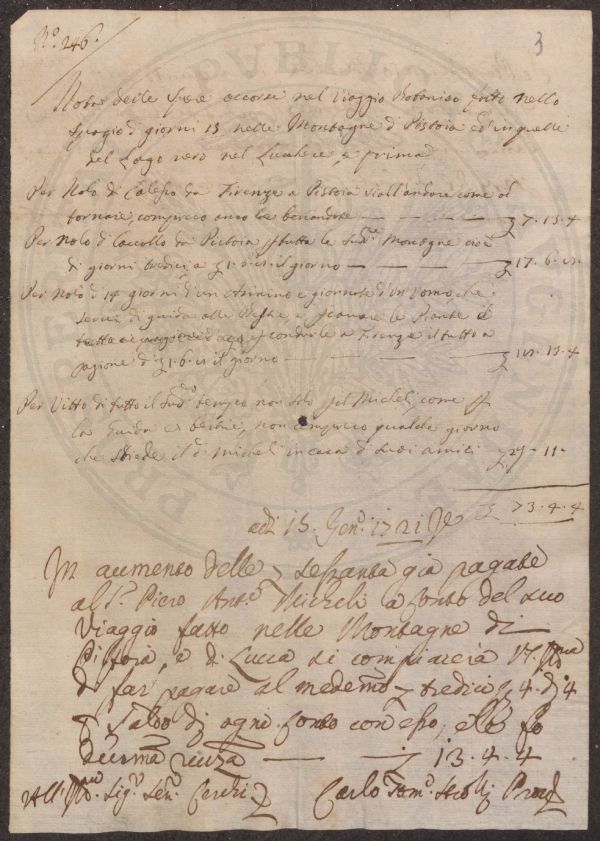 N.º 246.
3
Nota delle spese occorse nel Viaggio Botanico fatto nello
spazio di giorni 13 nelle Montagne di Pistoia ed in quelle
del Lago nero nel Lucchese, e prima
Per Nolo di Calesso da Firenze a Pistoia si all'andare come al
tornare, compreso anco le benandate — — — 7.13.4
Per Nolo di Cavallo da Pistoia p tutte le Sud.e Montagne cioè
di giorni tredici a il giorno — — — 17.6.
Per Nolo di 14 giorni d'un e giornate d'un Uomo che
servì di guida alle e scavare le Piante il
tutto condurle a Firenze il tutto a
ragione di 1.6. il giorno — — — 13.4
Per Vitto di tutto il Sud.o tempo non solo p il Micheli, come p
la Guida e bestie, non compreso qualche giorno
che stiede il d. Micheli in casa di suoi amici 27.11.
73.4.4
adì 15. Gen.o 1721
In aumento delle sessanta già pagate
al S.r Piero Ant.o Micheli a conto del suo
Viaggio fatto nelle Montagne di
Pistoia, e di Lucca si compiacerà V.S. Ill.ma
di far pagare al medemo tredici, 4. d. 4
p saldo di ogni conto con esso, e
— — 13.4.4
All' Ill.mo Sig.r Sen.r Cerchi
Carlo Tom.o